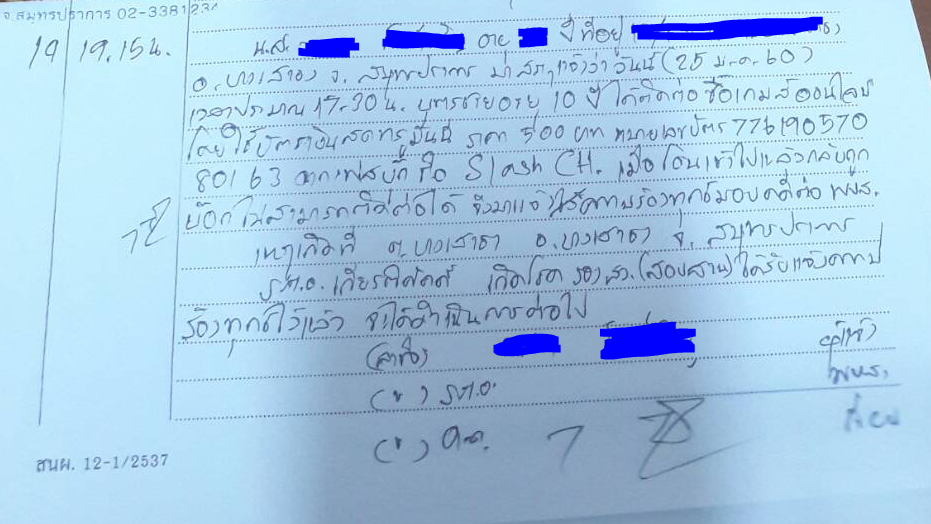 จ.สมุทรปราการ 02-3381234
19 19.15น. น.ส. อายุ ปี ที่อยู่
อ.บางเสาธง จ.สมุทรปราการ มาสภ.แจ้งว่า วันนี้ (25 ม.ค. 60)
เวลาประมาณ 17.30 น. บุตรชายอายุ 10 ปี ได้ติดต่อ ซื้อเกมส์ออนไลน์
โดยใช้บัตรเงินสดทรูมันนี่ ราคา 500 บาท หมายเลขบัตร 776190570
80163 จากเฟสบุ๊ค ชื่อ Slash CH. เมื่อโอนเข้าไปแล้วกลับถูก
บล๊อก ไม่สามารถติดต่อได้ จึงมาแจ้งไว้ร้องทุกข์มอบคดีต่อ พงส.
เหตุเกิดที่ ต.บางเสาธง อ.บางเสาธง จ.สมุทรปราการ
ร.ต.อ. เกียรติศักดิ์ รอง สว.(สอบสวน) ได้รับแจ้งความ
ร้องทุกข์ไว้แล้ว จะได้ดำเนินการต่อไป
(ลงชื่อ) ผู้แจ้ง
(") ร.ต.อ. พงส.
(") ด.ต.
สนผ. 12-1/2537